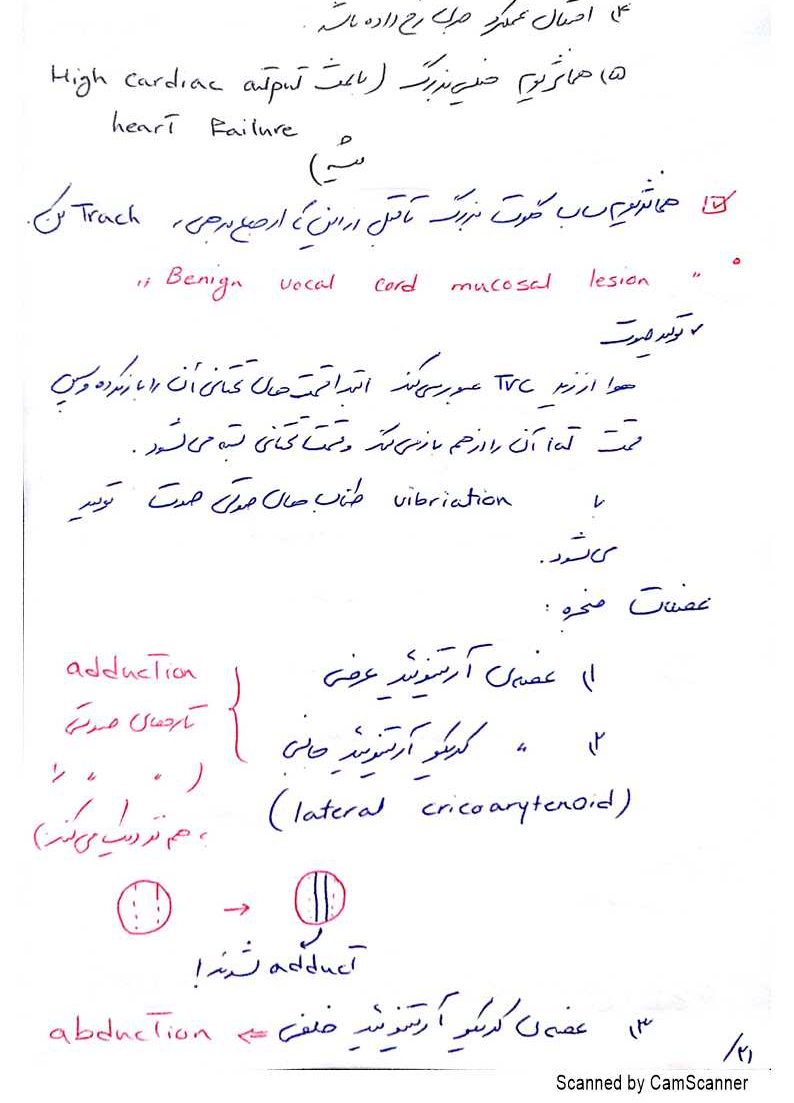 ۴) اختلال عملکرد حیاتی رخ داده باشد.
۵) همانژیوم خیلی بزرگ (باعث High cardiac output
heart failure
شه)
همانژیوم ساب گلوت بزرگ تا قبل از این که ارجاع بدهی، Trach کن.
" Benign vocal cord mucosal lesion "
✓ تولید صوت
هوا از زیر TVC عبور می‌کند ابتدا قسمت های تحتانی آن را باز کرده و سپس
قسمت آن را از هم باز می‌کند و قسمت تحتانی بسته می‌شود.
با vibriation طناب های صوتی صوت تولید
می‌شود.
عضلات حنجره :
۱) عضله‌ی آرتنوئید عرضی
adduction
تارهای صوتی
( " " را
به هم نزدیک می‌کنند)
۲) " کریکو آرتنوئید جانبی
(lateral cricoarytenoid)
→
adduct شدند!
۳) عضله‌ی کریکو آرتنوئید خلفی ⇐ abduction
۲۱/
Scanned by CamScanner